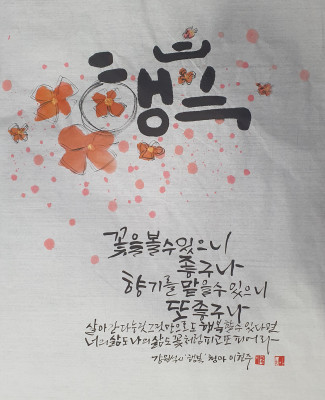 행복
꽃을볼수있으니
좋구나
향기를 맡을수있으니
또좋구나
살아간다는것그것만으로도 행복할수있다면
너의삶도나의삶도 꽃처럼피고 또 피어라
강원석시 '행복' 청아 이현주